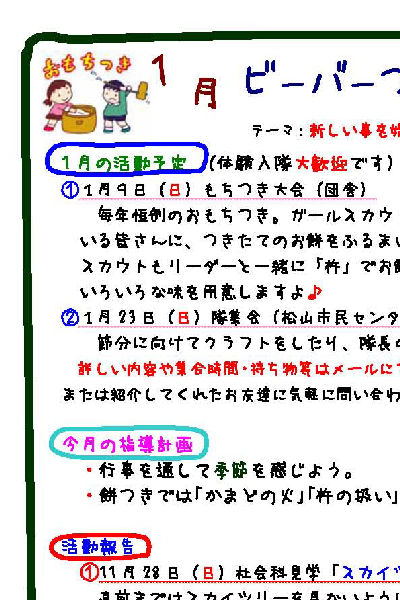 おもちつき
1月 ビーバーつ
テーマ：新しい事を始
1月の活動予定 (体験入隊大歓迎です)
①1月9日（日）もちつき大会（団舎）
毎年恒例のおもちつき。ガールスカウ
いる皆さんに、つきたてのお餅をふるまい
スカウトもリーダーと一緒に「杵」でお餅
いろいろな味を用意しますよ♪
②1月23日（日）隊集会（松山市民センタ
節分に向けてクラフトをしたり、隊長の
詳しい内容や集合時間・持ち物等はメールにて
または紹介してくれたお友達に気軽に問い合わ
今月の指導計画
・行事を通して季節を感じよう。
・餅つきでは「かまどの火」「杵の扱い」
活動報告
①11月28日（日）社会科見学「スカイツ
直前まではスカイツリーを見かいようにし